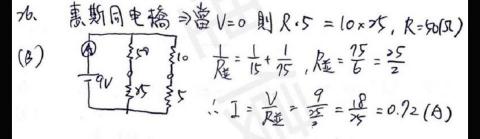 惠斯同电橋 ⇒ 當 V=0 則 R·5 = 10×25, R=50(Ω)
(B)
A
50
10
9V
25
5
1/R並 = 1/15 + 1/75, R並 = 75/6 = 25/2
∴ I = V/R並 = 9/(25/2) = 18/25 = 0.72 (A)